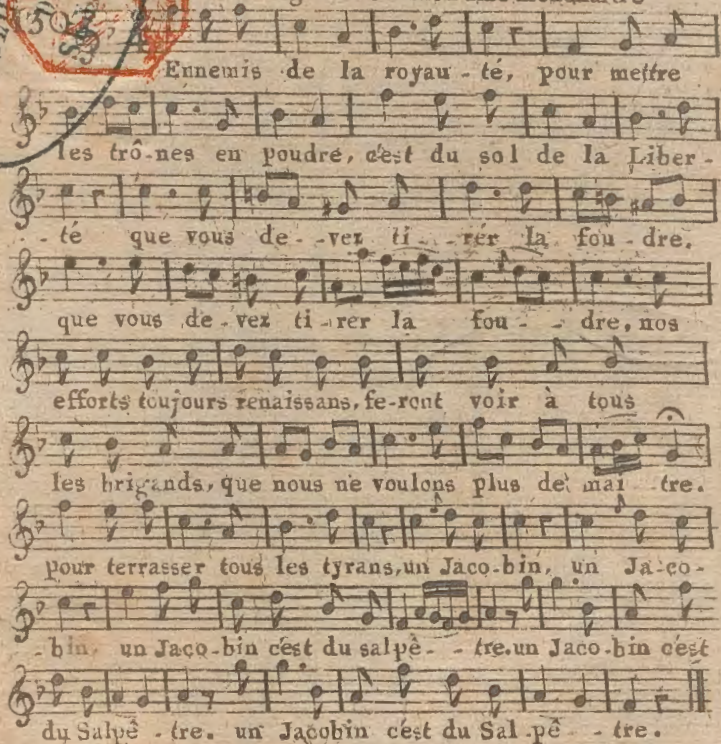 Ennemis de la royau - té, pour mettre
les trô-nes en poudre, c'est du sol de la Liber -
- té que vous de - -vez ti - - rer la fou - dre.
que vous de - vez ti - rer la fou - - dre, nos
efforts toujours renaissans, fe-ront voir à tous
les brigands, que nous ne voulons plus de mai tre.
pour terrasser tous les tyrans, un Jaco-bin, un Ja-co-
- bin, un Jaco-bin c'est du salpê - - tre. un Jaco-bin c'est
du Salpê - tre. un Jacobin c'est du Sal - pê - tre.